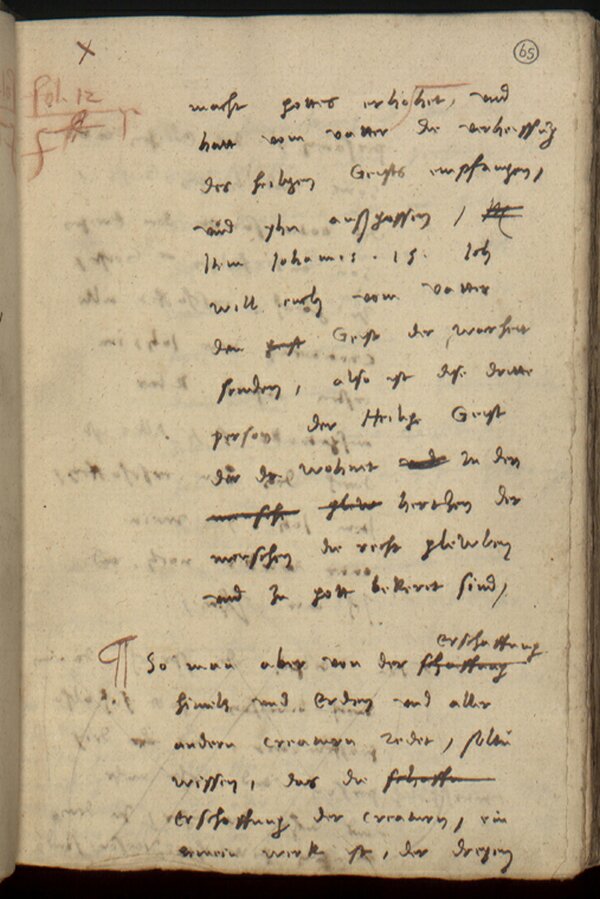 65
fol. 12
macht gottes erhohet, und
hatt vom vatter die verheissug
des heiligen Geists empfangen,
und yhn außgossen,
Item Johannes . 15. Ich
will euch vom vatter
den geist Geist der warheit
senden, also ist dise dritte
person der Heilige Geist
der do wohnet und in den
mensche glew hertzen der
menschen die recht glewben
und zu gott bekeret sind,
erschaffung
So man aber von der schaffung
himels und Erden und aller
andern creaturn redet, soltu
wissen, das die schaffu
erschaffung der creaturn, ein
gemein werk ist, der dreyen